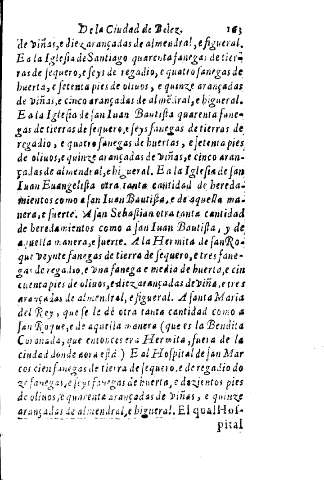 De la Ciudad de Belez. 163
de viñas, e diez arançadas de almendral, e figueral.
E a la Iglesia de Santiago quarenta fanegas de tier-
ras de sequero, e seys de regadio, e quatro fanegas de
huerta, e setenta pies de oliuos, e quinze arançadas
de viñas, e cinco arançadas de almẽdral, e higueral.
E a la Iglesia de san Iuan Bautista quarenta fane-
gas de tierras de sequero, e seys fanegas de tierras de
regadio, e quatro fanegas de huertas, e setenta pies
de oliuos, e quinze arançadas de viñas, e cinco aran-
çadas de almendral, e higueral. E a la Iglesia de san
Iuan Euangelista otra tanta cantidad de hereda-
mientos como a san Iuan Bautista, e de aquella ma-
nera, e suerte. A san Sebastian otra tanta cantidad
de heredamientos como a san Iuan Bautista, y de
aquella manera, e suerte. A la Hermita de san Ro-
que veynte fanegas de tierra de sequero, e tres fane-
gas de regadio, e vna fanega e media de huerto, e cin
cuenta pies de oliuos, e diez arançadas de viña, e tres
arançadas de almendral, e figueral. A santa Maria
del Rey, que se le dè otra tanta cantidad como a
san Roque, e de aquella manera (que es la Bendita
Coronada, que entonces era Hermita, fuera de la
ciudad donde aora està) E al Hospital de san Mar
cos cien fanegas de tierra de sequero, e de regadio do
ze fanegas, e seys fanegas de huerta, e dozientos pies
de oliuos, e quarenta arançadas de viñas, e quinze
arançadas de almendral, e higueral. El qual Hos-
pital